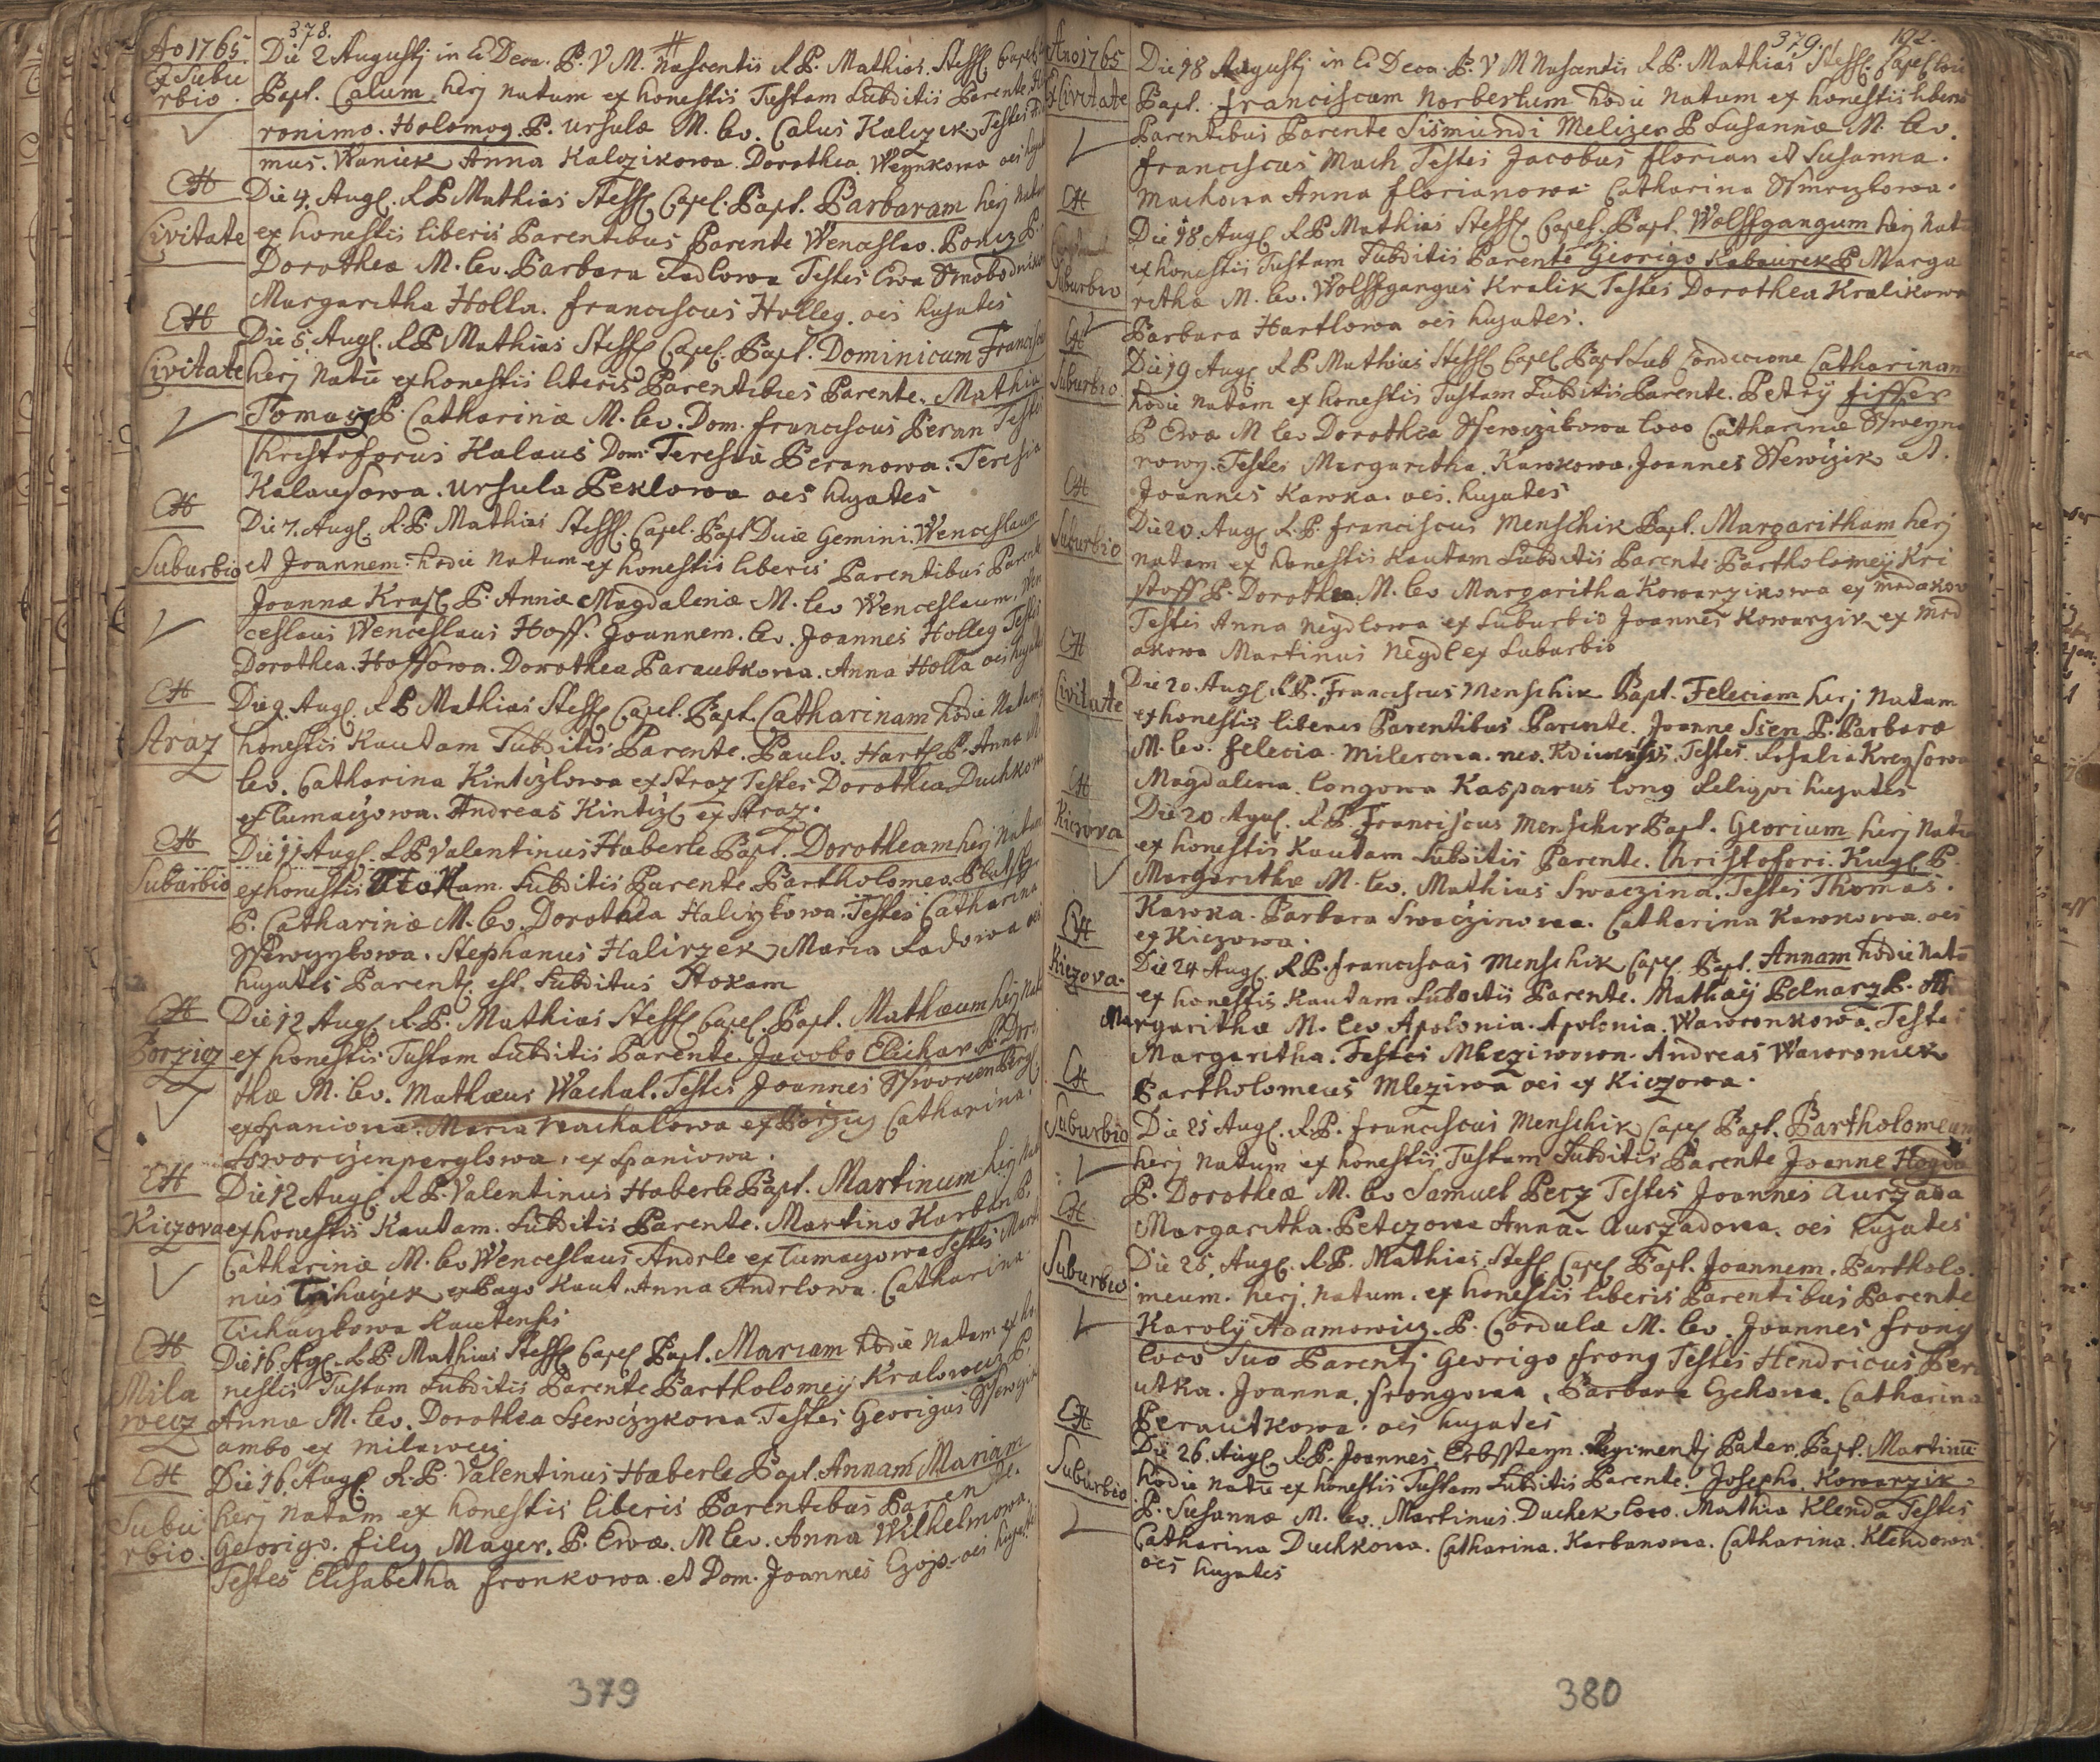 378.
Ao 1765
Ex Subu
rbio.
Die 2 Augustj in E Deca. B. V M. Nascentis R P. Mathias. Steff. Capel
Bapt. Calum. herj Natum ex honestis Tustam Subditis Parente
ronimo. Holomog. P. Ursula M. lev. Calus Kalczik Testes
mus. Waniek Anna Kalczikowa. Dorothea. Weynkowa oes
Civitate
Die 4. Aug. R P Mathias Steff Capel. Bapt. Barbaram herj Natam
ex honestis liberis Parentibus Parente Wenceslao. Poncz P.
Dorothea M. lev. Barbara Sadlowa Testes Ewa Swobodnikow
Margaritha Holla. Franciscus Holleg. oes hujates
Civitate
Die 5 Aug. R P Mathias Steff Capel. Bapt. Dominicum Francisc
herj Natu ex honestis liberis Parentibus Parente. Mathia
Tomasz P. Catharinæ M. lev. Dom. Franciscus Beran Testes
Christoforus Kalaus Dom. Teresia Beranowa. Teresia
Kalausowa. Ursula Peklowa oes hujates
Suburbio
Die 7. Aug. R. P. Mathias Steff. Capel. Bapt Duæ Gemini. Wenceslaum
et Joannem. hodie natum ex honestis liberis Parentibus Parente
Joanne Kras P. Annæ Magdalenæ M. lev Wenceslaum. Wen
ceslaus Wenceslaus Hoff. Joannem. lev. Joannes Holleg Testes
Dorothea. Hoffowa. Dorothea Paraubkowa. Anna Holla oes hujates
Straz
Die 9. Aug. R P Mathias Steff Capel. Bapt. Catharinam hodie Natam
honestis Kautam Subditis Parente. Paulo. Hartl P. Anna M
lev. Catharina Kintizlowa ex Straz Testes Dorothea Duchkowa
ex Tumaczowa. Andreas Kintizl ex Straz.
Suburbio
Die 11 Aug. R P Valentinus Haberle Bapt. Dorotheam herj Natam
ex honestis Stokam. Subditis Parente Bartholomeo. Blatsky
P. Catharinæ M. lev. Dorothea Halirzkowa. Testes Catharina
Ssewczykowa. Stephanus Halirzek Maria Ladowa oes
hujates Parent. est. Subditus Stokam
Borzicz
Die 12 Aug. R. P. Mathias Steff Capel. Bapt. Mathæum herj Natu
ex honestis Tustam Subditis Parente. Jacobo Elichar P. Doro
thæ M. lev. Mathæus Wachal. Testes Joannes Sswarczenpergl
ex Spaniowa. Maria Wachalowa ex Borzicz Catharina.
Sswarczenperglowa. ex Spaniowa.
Kiczova
Die 12 Aug. R P. Valentinus Haberle Bapt. Martinum herj Natu
ex honestis Kautam. Subditis Parente. Martino Karban P.
Catharinæ M. lev Wenceslaus Andrle ex Tumaczowa Testes Marti
nus Tichaczek ex Pago Kaut. Anna Andrlowa. Catharina
Tichaczkowa Kautensis
Mila
wecz
Die 16. Ag. R P Mathias Steff Capel Bapt. Mariam hodie Natam ex ho
nestis Tustam Subditis Parente Bartholomeÿ Kralowecz P.
Annæ M. lev. Dorothea Ssewczykowa Testes Georigus Ssewczik
ambo ex Milawecz
Subu
rbio.
Die 16. Aug. R. P. Valentinus Haberle Bapt. Annam Mariam
herj Natam ex honestis liberis Parentibus Parente.
Georigo. Filiz Mayer. P. Ewæ. M lev. Anna Wilhelmowa.
Testes Elisabetha Fronkowa. et Dom. Joannes Czojo. oes hujates
379
379. 192.
Ano 1765
Ex Civitate
Die 18 Augustj in E Deca. B. V M Nascentis R P. Mathias Steff. Capellanu
Bapt. Franciscum Norbertum hodie Natum ex honestis liberis
Parentibus Parente Sismundi Melizer P Susannæ M. lev.
Franciscus Mach Testes Jacobus Florian et Susanna.
Machowa Anna Florianowa Catharina Ssmrczkowa.
Suburbio
Die 18 Aug. R P Mathias Steff Capel. Bapt. Wolffgangum herj Natu
ex honestis Tustam Subditis Parente Georigo Kabaurek P Marga
rithæ M. lev. Wolffgangus Kralik Testes Dorothea Kralikowa
Barbara Hartlowa oes hujates.
Suburbio.
Die 19 Aug R P Mathias Steff Capel Bapt Sub Condiccione Catharinam
hodie natam ex honestis Tustam Subditis Parente. Petrÿ Fisser
P Ewæ M lev Dorothea Ssewczikowa loco Catharinæ Ssweyna
rowy. Testes Margaritha. Kawkowa. Joannes Ssewczik et.
Joannes Kawka. oes. hujates
Suburbio
Die 20. Aug R. P. Franciscus Menschik Bapt. Margaritham herj
natam ex honestis Kautam Subditis Parente Bartholomeÿ Kri
stoff P. Dorothea M. lev Margaritha Kowarzikowa ex Mrdakow
Testes Anna Neydlowa ex Suburbio Joannes Kowarzik ex Mrd
akowa Martinus Neydl ex Suburbio
Civitate
Die 20. Aug R P. Franciscus Menschik Bapt. Feleciam herj Natam
ex honestis liberis Parentibus Parente. Joanne Ssen P. Barbaræ
M. lev. Felecia. Milerowa. Testes. Rosalia Kreysowa
Magdalena. Longowa Kasparus Long Reliqvi hujates
Kiczova
Die 20 Agu. R P. Franciscus Menschik Bapt. Georium herj Natu
ex honestis Kautam Subditis Parente. Christofori. Kugl P.
Margarithæ M. lev. Mathias Swaczina. Testes Thomas.
Kawka. Barbara Swaczinowa. Catharina Kawkowa. oes
ex Kiczowa.
Kiczova.
Die 24 Aug R. P. Franciscus Menschik Capel Bapt. Annam hodie Nata
ex honestis Kautam Subditis Parente. Mathæÿ Pelnarz P. M
Margarithæ M. lev Apolonia. Apolonia. Wawronkowa. Testes
Margaritha. Testes Mleziwowa. Andreas Wawroniek
Bartholomeus Mleziwa oes ex Kiczowa.
Suburbio
Die 25 Aug. R. P. Franciscus Menschik Capel Bapt. Bartholomeum
herj Natum ex honestis Tustam Subditis Parente Joanne Hogda
P. Dorotheæ M. lev Samuel Pecz Testes Joannes Aurzada
Margaritha. Petczowa Anna. Aurzadowa. oes hujates
Suburbio
Die 25. Aug. R. P. Mathias. Steff Capel Bapt. Joannem. Bartholo.
meum. herj. Natum. ex honestis liberis Parentibus Parente
Karolÿ Adamowicz. P. Cordulæ M. lev. Joannes Frong
loco Suo Parentj Georigo Frong Testes Hendricus Ber
utka. Joanna. Frongowa. Barbara Czchowa. Catharina
Berautkowa. oes hujates
Suburbio
Die 26. Aug R. P. Joannes. Erbssteyn. Regimentj Pater. Bapt. Martinu
hodie Natu ex honestis Tustam Subditis Parente. Josepho. Kowarzik
P. Susannæ M. lev. Martinus. Duchek loco. Mathia Klenda Testes
Catharina Duchkowa. Catharina. Karbanowa. Catharina. Klendowa.
oes hujates
380